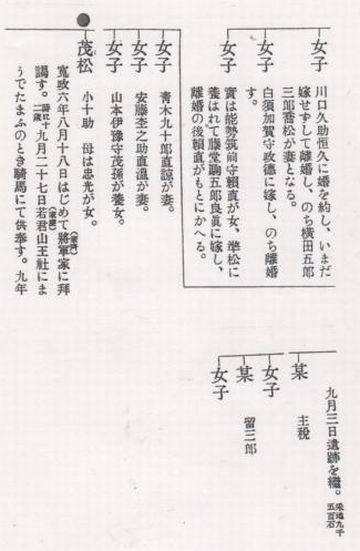 女子
川口久助恒久に婚を約し、いまだ
嫁せずして離婚し、のち横田五郎
三郎喬松が妻となる。
女子
白須加賀守政徳に嫁し、のち離婚
す。
女子
實は能勢筑前守頼直が女、準松に
養はれて藤堂駒五郎良眞に嫁し、
離婚の後頼直がもとにかへる。
女子
青木九十郎直諒が妻。
女子
安藤杢之助直温が妻。
女子
山本伊豫守茂孫が養女。
茂松
小十助 母は忠光が女。
寛政六年八月十八日はじめて將軍家に拜
謁す。時に十二歳 九月二十七日若君山王社にま
うでたまふのとき騎馬にて供奉す。九年
九月三日遺跡を繼。采地九千五百石
某
主税
女子
某
留三郎
女子